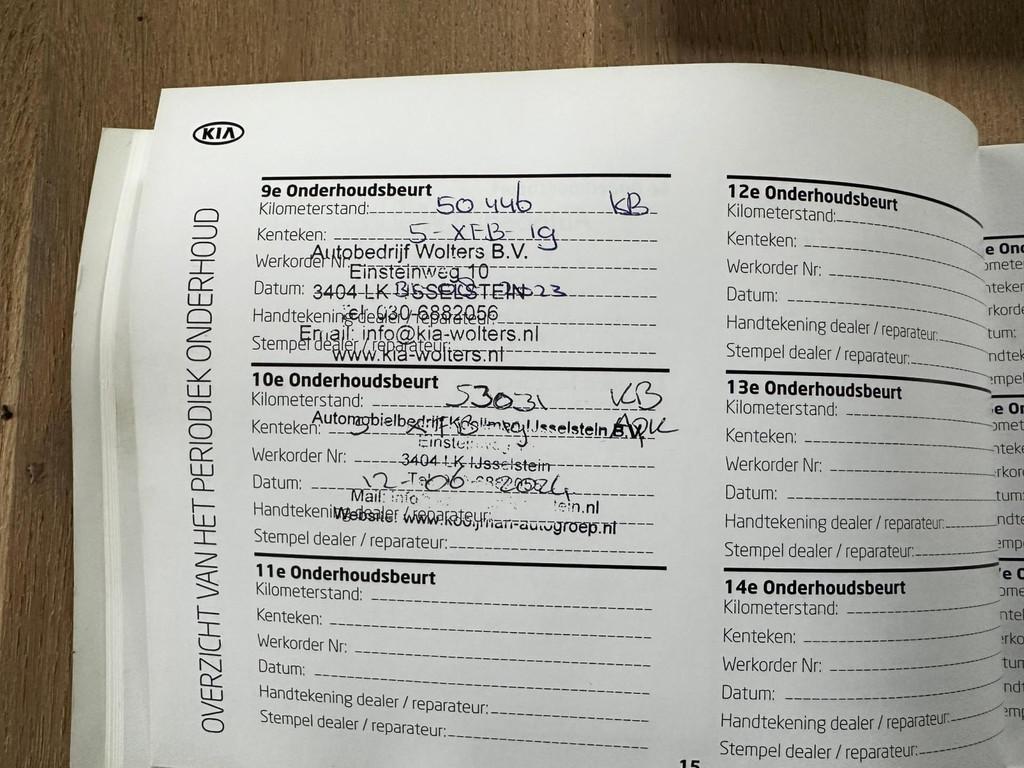 KIA
OVERZICHT VAN HET PERIODIEK ONDERHOUD
9e Onderhoudsbeurt
Kilometerstand: 50446 KB
Kenteken: 5-XFB-19
Autobedrijf Wolters B.V.
Werkorder Nr:
Einsteinweg 10
Datum: 2023
3404 LK IJSSELSTEIN
Handtekening dealer / reparateur:
Tel: 030-6882056
Email: info@kia-wolters.nl
Stempel dealer / reparateur:
www.kia-wolters.nl
10e Onderhoudsbeurt
Kilometerstand: 53031 KB
Kenteken: 5 XFB 19 APK
IJsselstein B.V.
Werkorder Nr:
3404 LK IJsselstein
Datum: 12-06-2024
Mail: info
Handtekening dealer / reparateur:
Website: www.kooijman-autogroep.nl
Stempel dealer / reparateur:
11e Onderhoudsbeurt
Kilometerstand:
Kenteken:
Werkorder Nr:
Datum:
Handtekening dealer / reparateur:
Stempel dealer / reparateur:
12e Onderhoudsbeurt
Kilometerstand:
Kenteken:
Werkorder Nr:
Datum:
Handtekening dealer / reparateur:
Stempel dealer / reparateur:
13e Onderhoudsbeurt
Kilometerstand:
Kenteken:
Werkorder Nr:
Datum:
Handtekening dealer / reparateur:
Stempel dealer / reparateur:
14e Onderhoudsbeurt
Kilometerstand:
Kenteken:
Werkorder Nr:
Datum:
Handtekening dealer / reparateur:
Stempel dealer / reparateur:
15